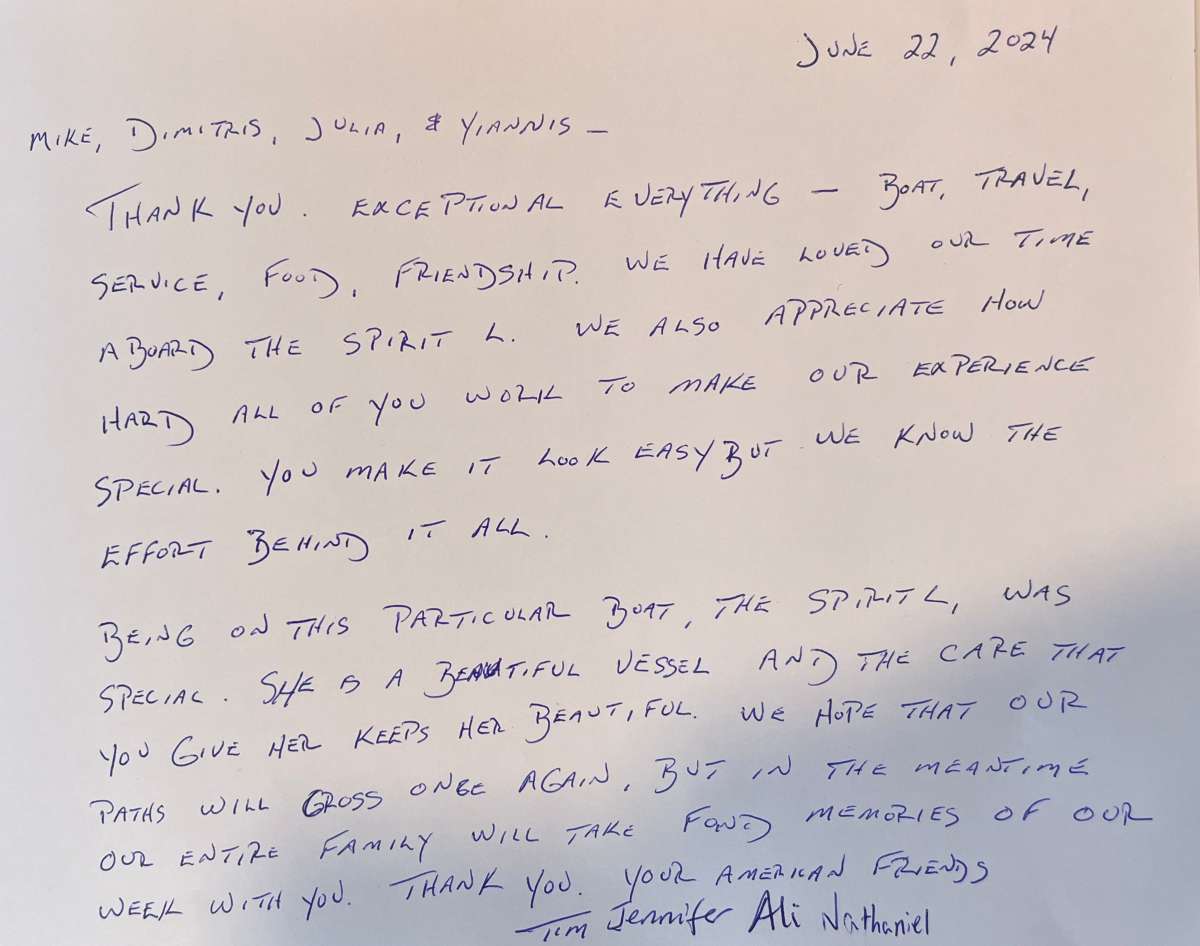 JUNE 22, 2024
MIKE, DIMITRIS, JULIA, & YIANNIS —
THANK YOU. EXCEPTIONAL EVERYTHING — BOAT, TRAVEL,
SERVICE, FOOD, FRIENDSHIP. WE HAVE LOVED OUR TIME
ABOARD THE SPIRIT L. WE ALSO APPRECIATE HOW
HARD ALL OF YOU WORK TO MAKE OUR EXPERIENCE
SPECIAL. YOU MAKE IT LOOK EASY BUT WE KNOW THE
EFFORT BEHIND IT ALL.
BEING ON THIS PARTICULAR BOAT, THE SPIRIT L, WAS
SPECIAL. SHE IS A BEAUTIFUL VESSEL AND THE CARE THAT
YOU GIVE HER KEEPS HER BEAUTIFUL. WE HOPE THAT OUR
PATHS WILL CROSS ONCE AGAIN, BUT IN THE MEANTIME
OUR ENTIRE FAMILY WILL TAKE FOND MEMORIES OF OUR
WEEK WITH YOU. THANK YOU. YOUR AMERICAN FRIENDS
TIM Jennifer Ali Nathaniel